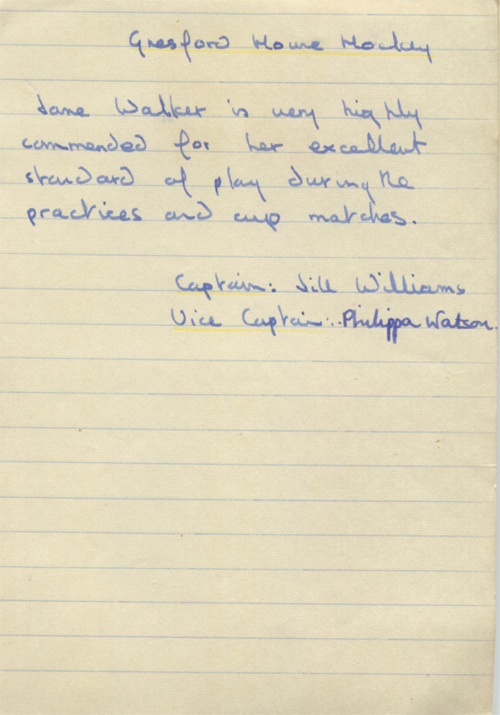 Gresford House Hockey
Jane Walker is very highly
commended for her excellent
standard of play during the
practices and cup matches.
Captain: Jill Williams
Vice Captain: Philippa Watson.